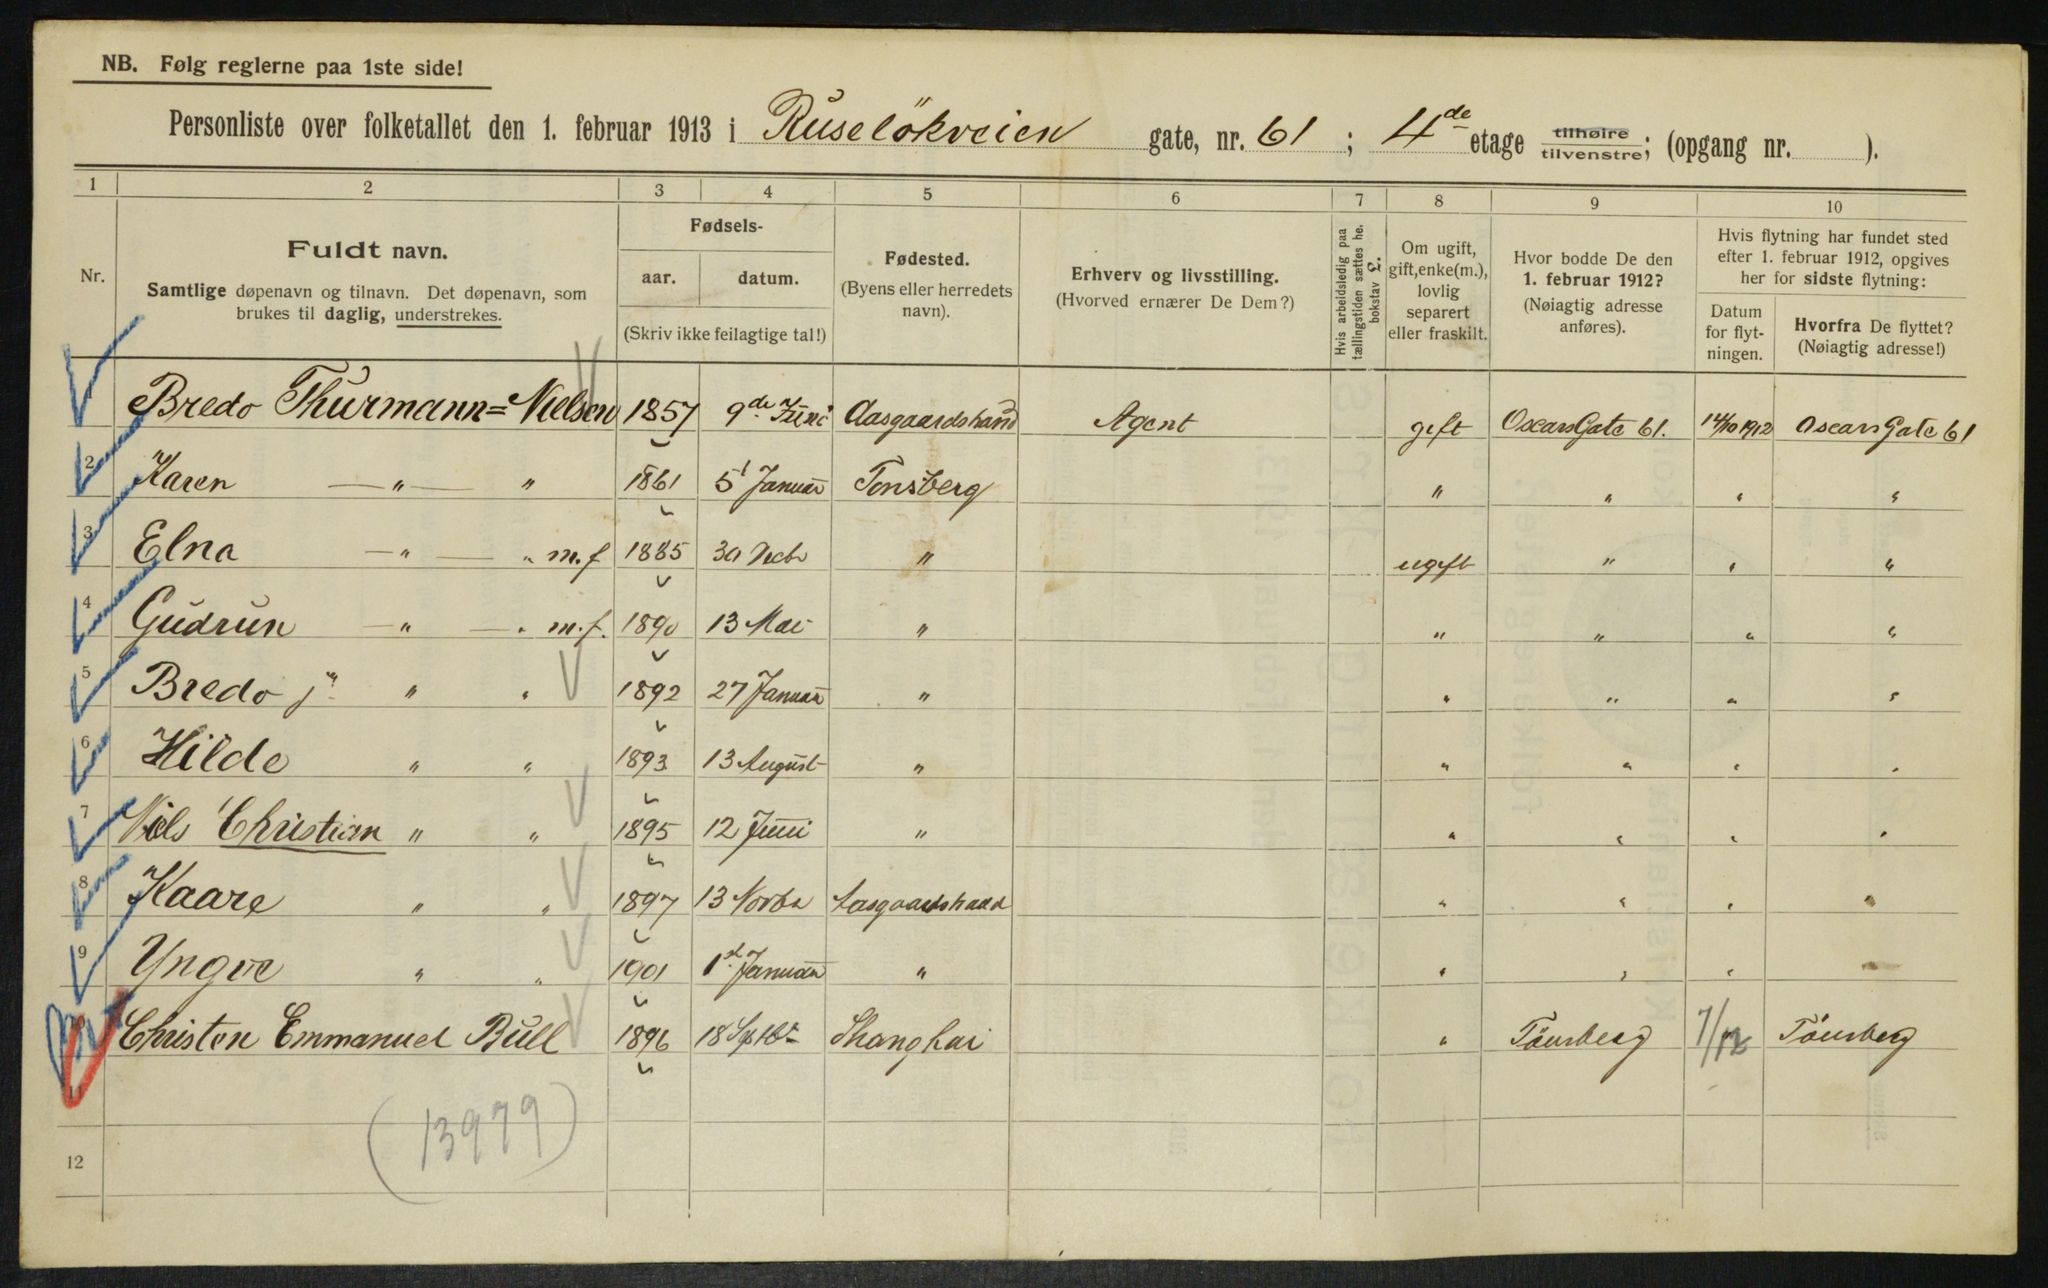 NB. Følg reglerne paa 1ste side!
Personliste over folketallet den 1. februar 1913 i Ruseløkveien gate, nr. 61; 4de etage tilhøire tilvenstre; (opgang nr. ).
1 2 3 4 5 6 7 8 9 10
Nr.
Fuldt navn.
Samtlige døpenavn og tilnavn. Det døpenavn, som
brukes til daglig, understrekes.
Fødsels-
aar. datum.
(Skriv ikke feilagtige tal!)
Fødested.
(Byens eller herredets
navn).
Erhverv og livsstilling.
(Hvorved ernærer De Dem?)
Hvis arbeidsledig paa
tællingstiden sættes he.
bokstav L.
Om ugift,
gift, enke(m.),
lovlig
separert
eller fraskilt.
Hvor bodde De den
1. februar 1912?
(Nøiagtig adresse
anføres).
Hvis flytning har fundet sted
efter 1. februar 1912, opgives
her for sidste flytning:
Datum
for flyt-
ningen.
Hvorfra De flyttet?
(Nøiagtig adresse!)
Bredo Thurmann=Nielsen 1857 9de Juni Aasgaardstrand Agent gift Oscars Gate 61. 14/10 1912 Oscars Gate 61
2 Karen —"— " 1861 5 Januar Tønsberg " " " "
3 Elna —"— " m.f 1885 30 Decbr " ugift " " "
4 Gudrun —"— " m.f. 1890 13 Mai " " " " "
5 Bredo jr " " 1892 27 Januar " " " " "
6 Hilde " " 1893 13 August " " " " "
7 Niels Christian " " 1895 12 Juni " " " " "
8 Kaare " " 1897 13 Novbr Aasgaardstrand " " " "
9 Yngve " " 1901 1st Januar " " " "
10 Christen Emmanuel Bull 1896 18 Septbr Shanghai " Tönsberg 7/12 Tönsberg
11
(13979)
12